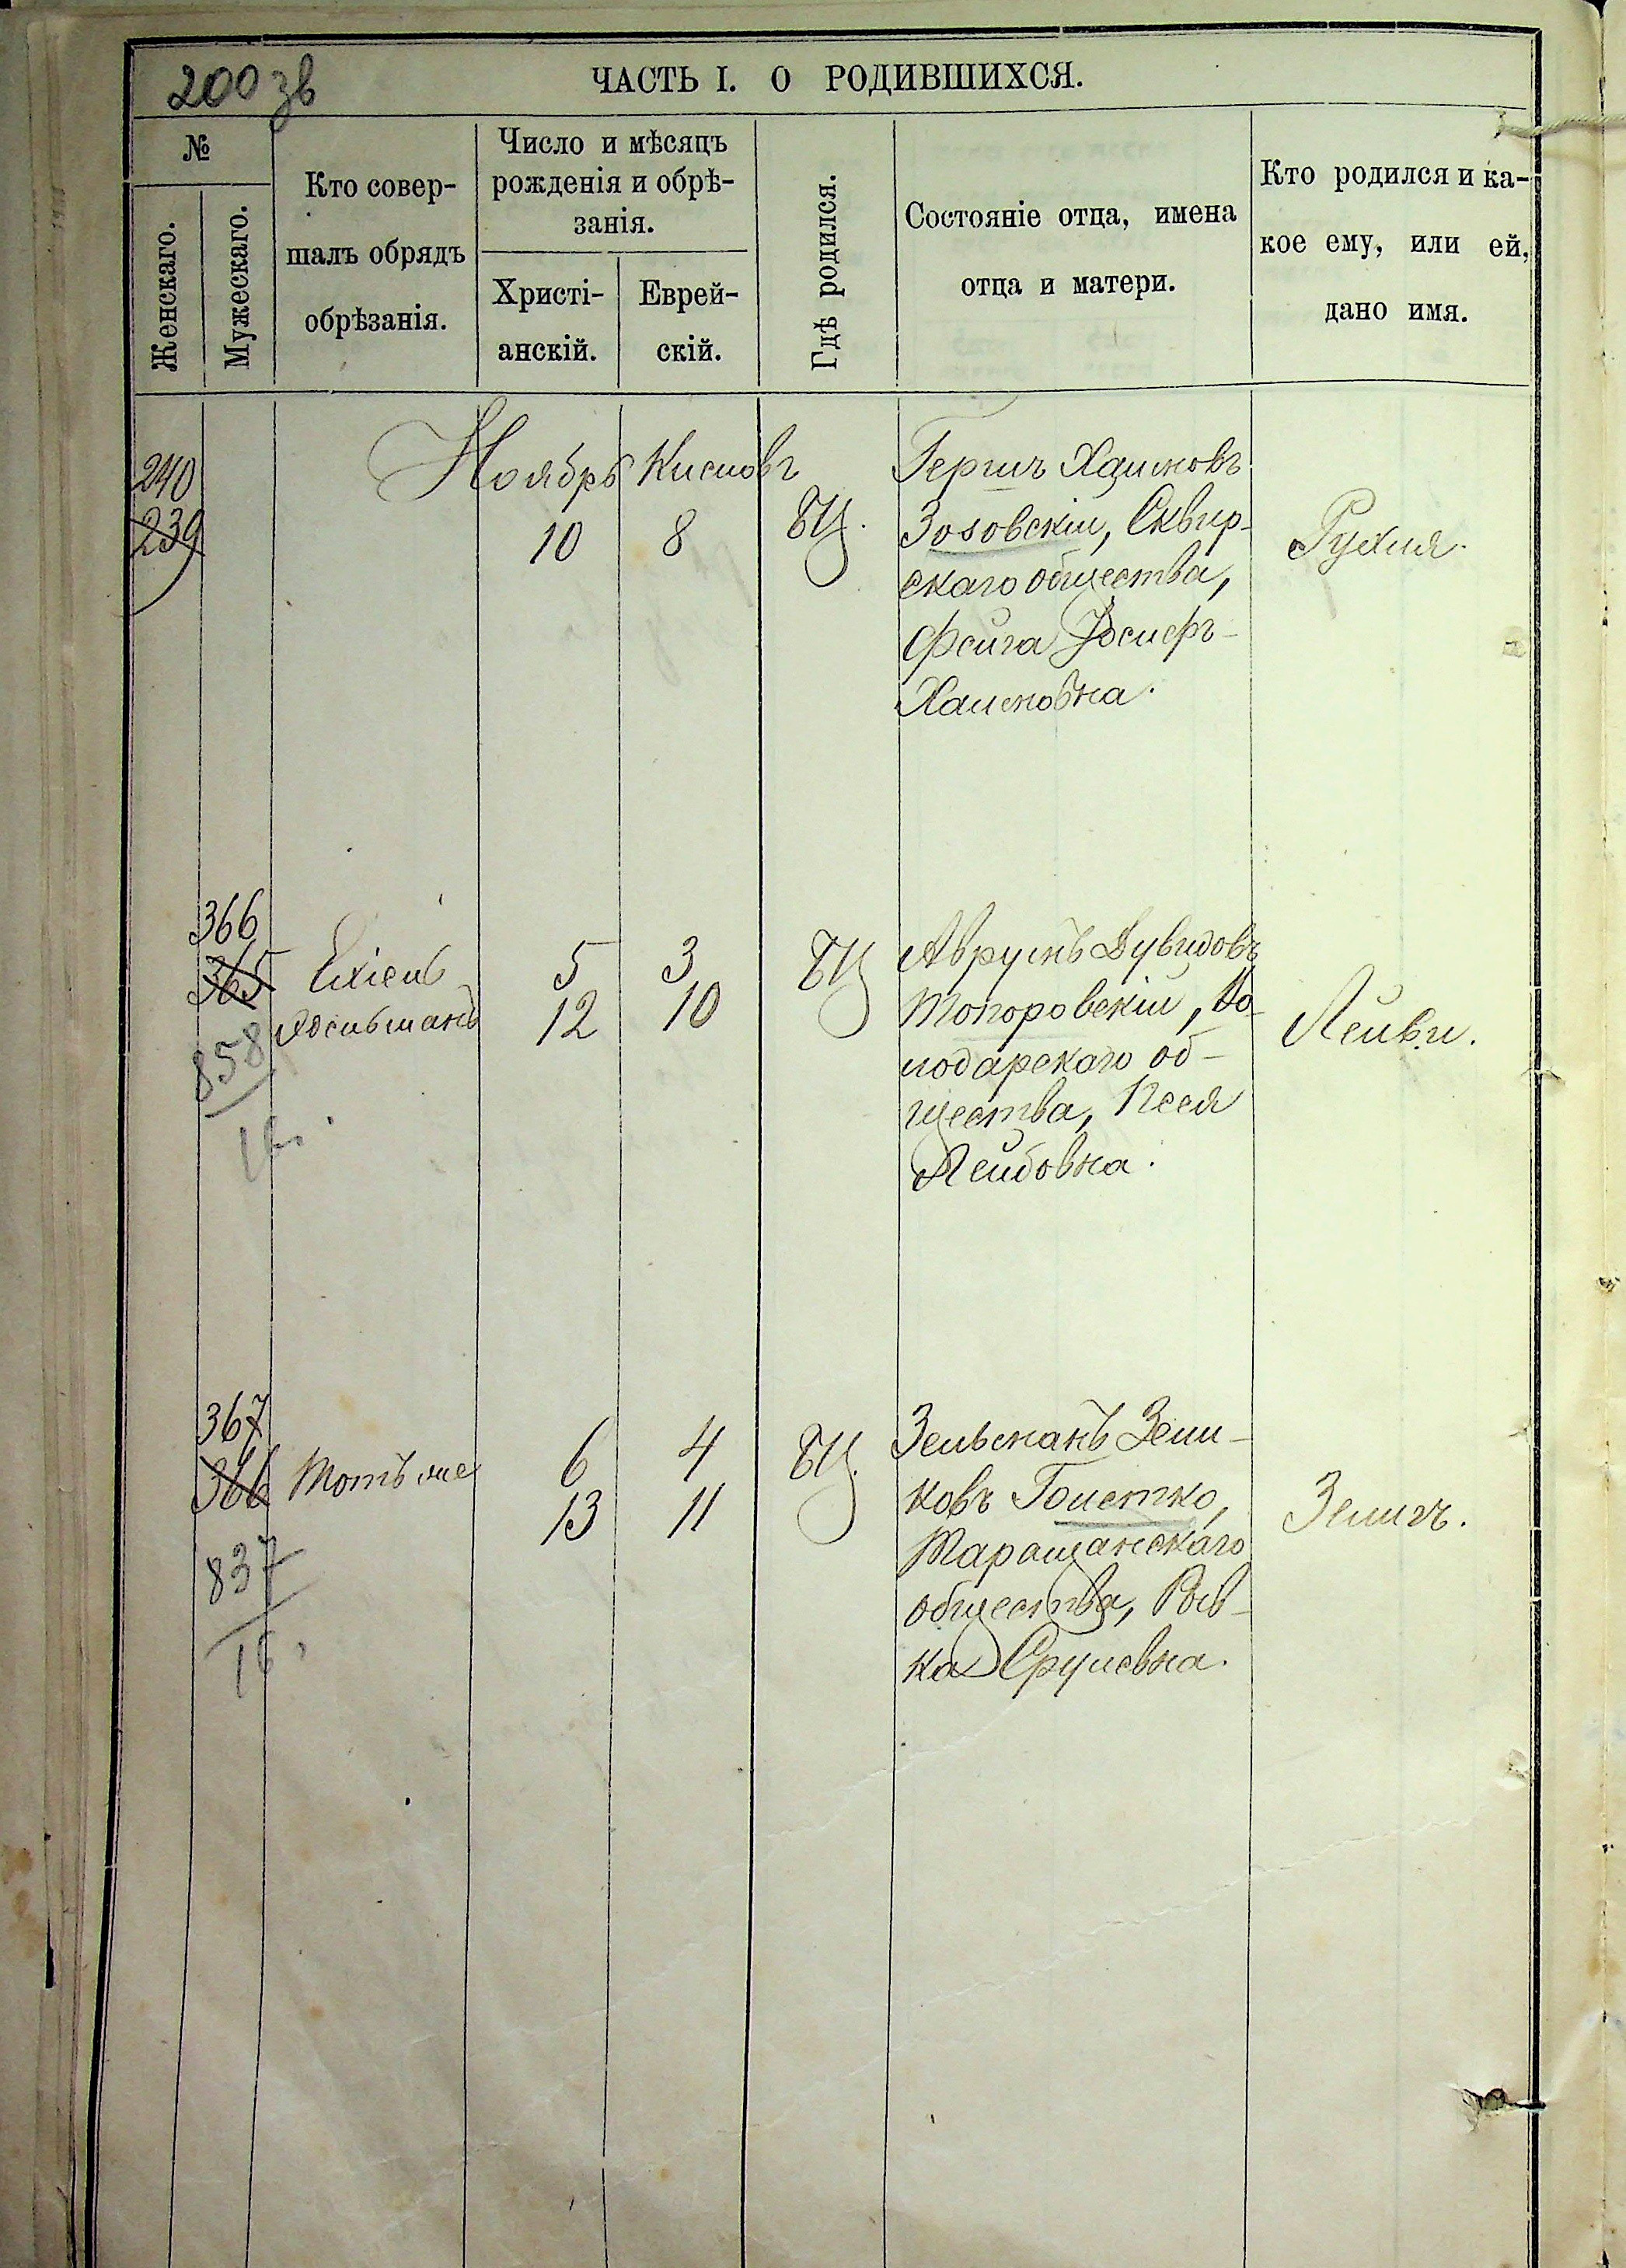 200 зв
ЧАСТЬ I. О РОДИВШИХСЯ.
№
Женскаго.
Мужескаго.
Кто совер-
шалъ обрядъ
обрѣзанія.
Число и мѣсяцъ
рожденія и обрѣ-
занія.
Христі-
анскій.
Еврей-
скій.
Гдѣ родился.
Состояніе отца, имена
отца и матери.
Кто родился и ка-
кое ему, или ей,
дано имя.
Ноябрь Кислевъ
240
239
10 8 БЦ.
Гершъ Хаимовъ
Зозовскій, Сквир-
скаго общества,
Фейга Йосифъ-
Хаимовна.
Рухля.
366
365
858
Ехіель
5 3
12 10
БЦ
Аврумъ Дувидовъ
Топоровскій, Во-
лодарскаго об-
щества, Песя
Лейбовна.
Лейви.
367
366
837
16.
Тотъ же
6 4
13 11
БЦ.
Зельманъ Зели-
ковъ
Таращанскаго
общества, Рив-
ка Срулевна.
Зелигъ.